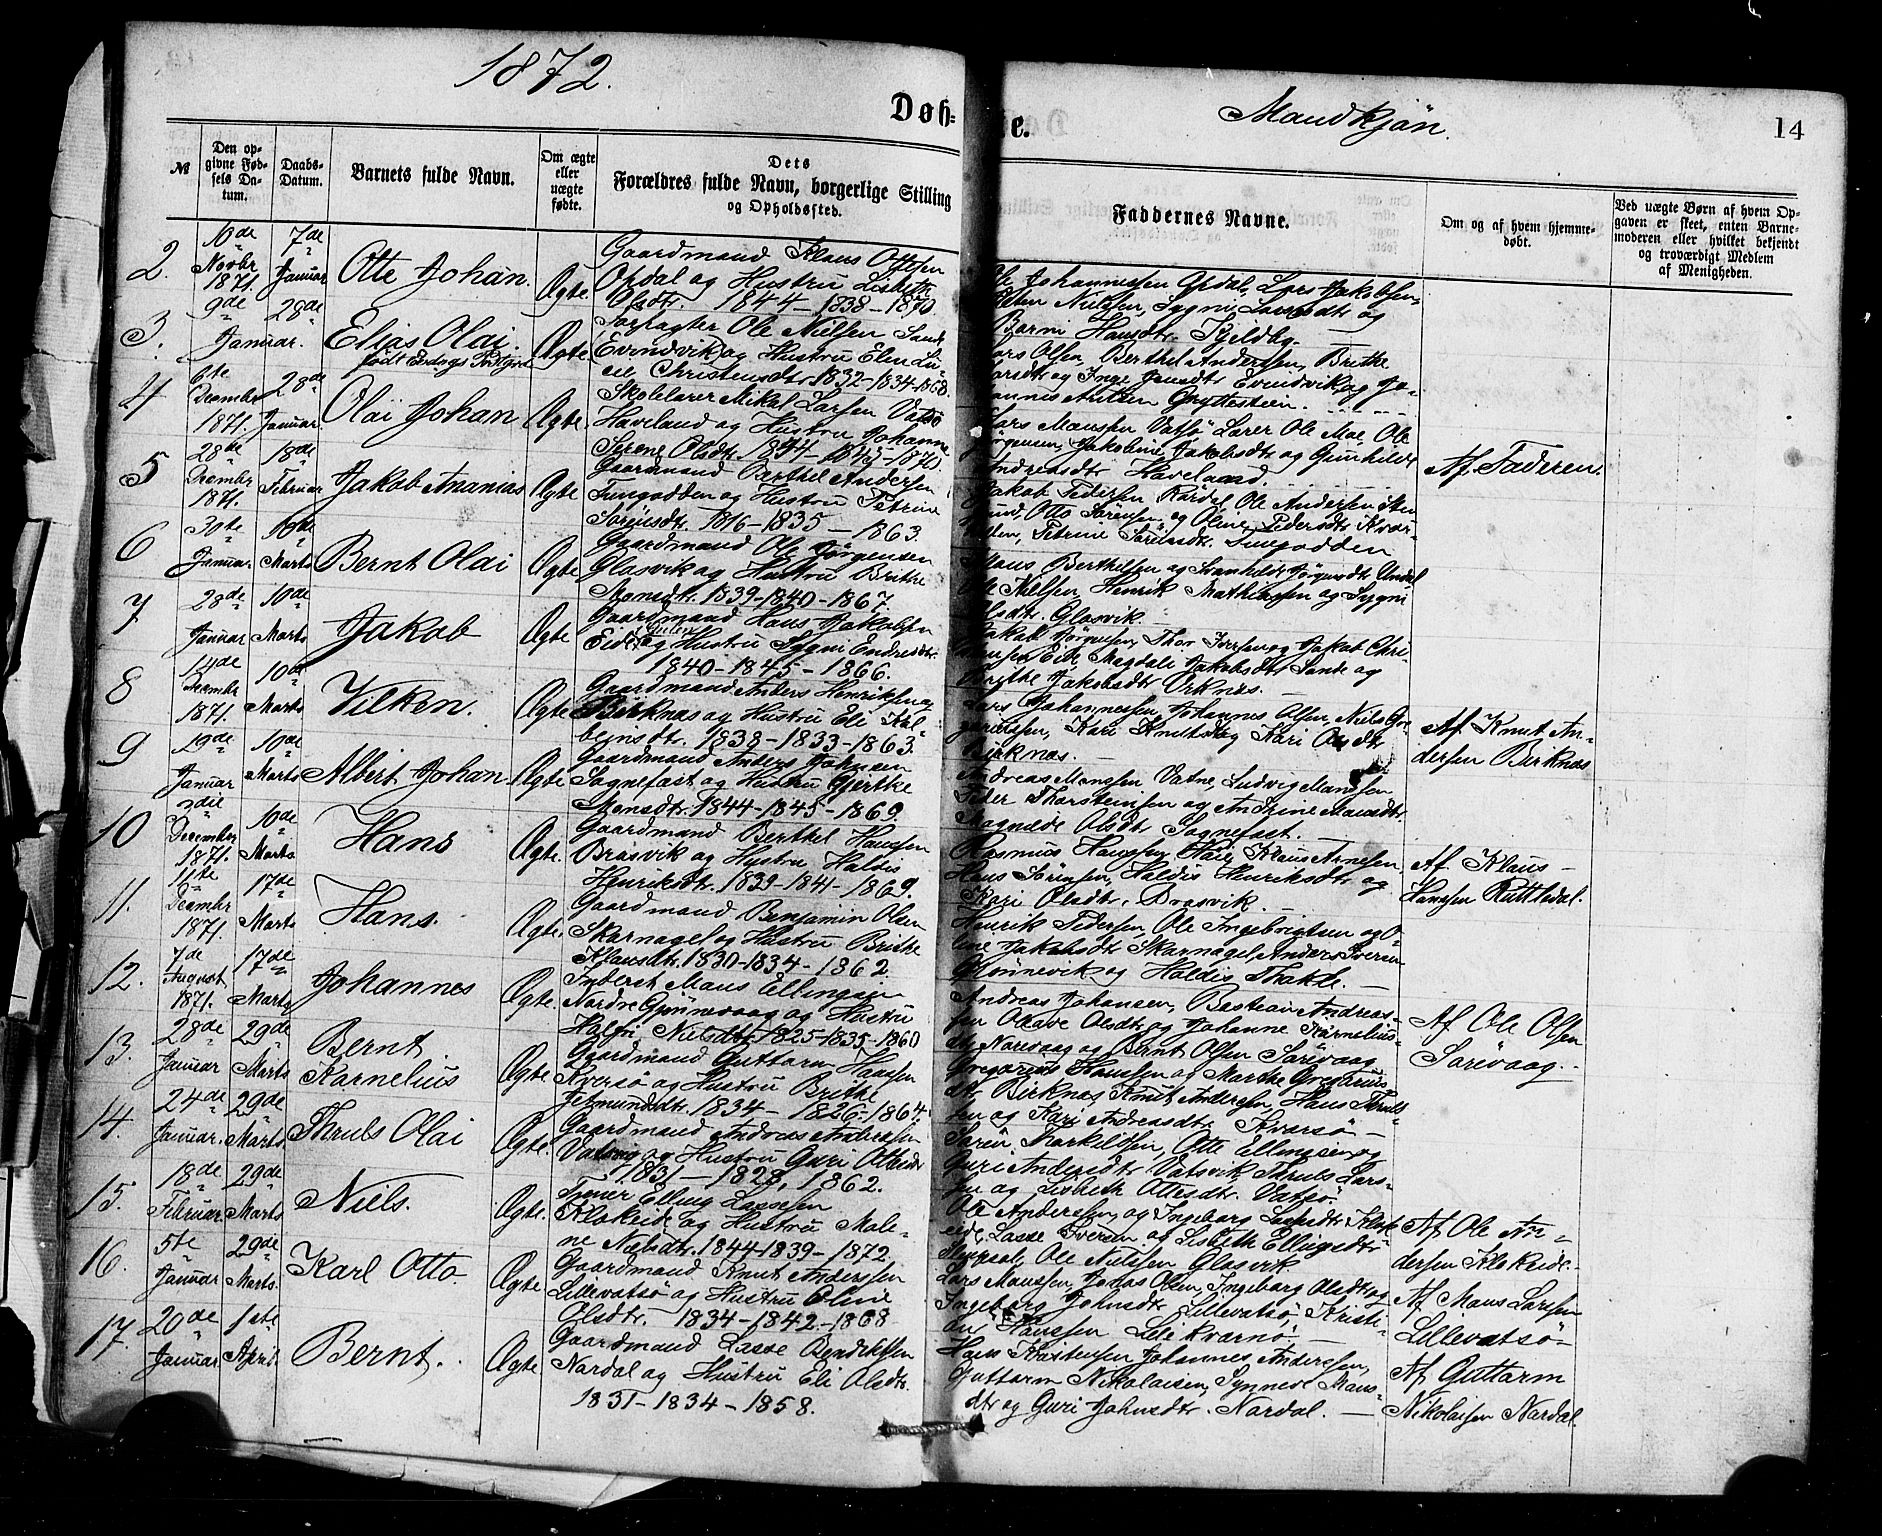 1872.
Døb=
e.
Mandkjøn.
14
№
Den op-
givne Fød-
sels Da-
tum.
Daabs-
Datum.
Barnets fulde Navn.
Om ægte
eller
uægte
fødte.
Dets
Forældres fulde Navn, borgerlige Stilling
og Opholdssted.
Faddernes Navne.
Om og af hvem hjemme-
døbt.
Ved uægte Børn af hvem Op-
gaven er skeet, enten Barne-
moderen eller hvilket bekjendt
og troværdigt Medlem
af Menigheden.
2. 10de Novbr 1871. 7de Januar Otte Johan. Ægte
Gaardmand Klaus Ottesen
Opdal og Hustru Lisbeth
Olsdtr. 1844-1838-1870.
Ole Johannessen Opdal, Lars Jakobsen,
Nielsen, Sygni Larsdtr og
Hansdtr. Kjeldby
3. 9de Januar. 28de Elias Olai. Ægte
født Evdogs Postgrd
Ole Nielsen Sande
Evindvik og Hustru Elen Lu-
cie Christensdtr. 1832-1834-1868.
Lars Olsen, Berthel Anderssen, Brithe
Larsdtr og Inge Jensdtr Evindvik, og Jo-
hannes Gryttestein.
4 6te December 1871. 28de Januar. Olai Johan Ægte
Skolelærer Mikal Larsen Vatsø
Haveland og Hustru Johanne
Serene Olsdtr. 1844-1845-1870.
Lars Monssen Vatsø Lærer Ole Moe, Ole
Jørgensen, Jakobine Jakobsdtr og Gunhilde
Andreasdtr Haveland.
Af Faderen.
5 28de Decembr 1871. 18de Februar Jakob Ananias Ægte
Gaardmand Berthel Andersen
Tungodden og Hustru Petrine
Sørensdtr. 1816-1835-1863.
Jakob Pedersen Ole Andersen
Otto Sørensen og Oline Pedersdtr
Petrine Sørensdtr. Tungodden
6 30te Januar. 10de Marts Bernt Olai Ægte
Gaardmand Ole Jørgensen
Glasvik og Hustru Brithe
Monsdtr. 1839-1840-1867.
Klaus Berthelsen og Svanhilde Jørgensdtr
Ole Nielsen, Henrik Mathiassen og Sygni
Olsdtr. Glasvik
7 28de Januar 10de Marts Jakob Ægte
Gaardmand Hans Jakobsen
Eide og Hustru Sygni Endresdtr.
1840-1845-1866.
Jakob Jørgensen, Thor Iversen og Jakob Chri-
stensen Eide Magdali Jakobsdtr Sande og
Brythe Jakobsdtr Ørknæs.
8 14de Decembr 1871. 10de Marts Vilken. Ægte
Gaardmand Anders Henriksen
Birknæs og Hustru Eli Kol-
beinsdtr. 1838-1833-1863.
Lars Johannessen, Johannes Olsen, Niels Gre-
gariussen, Kari Knutsdtr og Kari Olsdtr
Birknæs.
Af Knut An-
dersen Birknæs
9 19de Januar 10de Marts Albert Johan. Ægte
Gaardmand Anders Johnsen
Sognefast og Hustru Gjertke
Monsdtr. 1844-1845-1869.
Andreas Monssen Vatne, Ludvig Monssen
Peder Thorsteinsen og Andrine Monsdtr.
Magnilde Olsdtr Sognefast.
10 2die December 1871. 10de Marts Hans Ægte.
Gaardmand Berthel Hanssen
Brosvik og Hustru Haldis
Henriksdtr. 1839-1841-1869.
Rasmus Hanssen Høie, Klaus Arnesen,
Hans Sørensen, Haldis Henriksdtr og
Kari Olsdtr. Brosvik.
Af Klaus
Hanssen Ruttledal.
11. 11te Decembr 1871. 17de Marts Hans. Ægte.
Gaardmand Benjamin Olsen
Skarnagel og Hustru Brithe
Klausdtr. 1830-1834-1862.
Henrik Pedersen, Ole Ingebrigtsen og O-
line Jakobsdtr Skarnagel, Anders Iversen
Grønnevik og Haldis Thakle.
12. 7de August 1871. 17de Marts Johannes Ægte
Inderst Mons Ellingsen
Nordre Gjønnevaag og Hustru
Nielsdtr. 1825-1835-1860
Andreas Johansen, Bastian Andreas-
sen Olave Olsdtr og Johanne Kornelius-
dtr Norevaag og Bernt Olsen Sørevaag
Af Ole Olsen
Sørevaag.
13. 28de Januar 29de Marts Bernt Kornelius Ægte
Gaardmand Guttorm Hanssen
Kversø og Hustru Brithe
Jetmundsdtr. 1834-1826-1864.
Gregarius Hanssen og Marthe Gregarius-
dtr. Birknæs Knut Andersen, Hans Thruls-
sen og Kari Andreasdtr. Kversø
14. 24de Januar. 29de Marts Thruls Olai Ægte
Gaardmand Andreas Anderssen
og Hustru Guri Ottesdtr
1831-1828, 1862.
Søren Torkildsen, Otte Ellingsen og
Guri Andersdtr Vatsvik, Thruls Lars-
sen og Lisbeth Ottesdtr. Vatsø
15. 18de Februar. 29de Marts Niels. Ægte.
Elling Lassesen
Klokeide og Hustru Male-
ne Nielsdtr. 1844-1839-1872.
Ole Anderssen og Ingeborg Lassesdtr Klok-
eide, Lasse Iversen og Lisbeth Ellingsdtr
Ole Nielsen Glasvik.
Af Ole An-
dersen Klokeide.
16. 5te Januar 29de Marts. Karl Otto. Ægte
Gaardmand Knut Anderssen
Lillevatsø og Hustru Oline
Olsdtr. 1834-1842-1868
Lars Monssen, Jonas Olsen, Ingeborg Olsdtr og
Ingeborg Johnsdtr Lillevatsø, Kristi-
an Hanssen Lille Kvernø.
Af Mons Larssen
Lillevatsø
17. 20de Januar 1ste April Bernt. Ægte
Gaardmand Lasse Bendiktsen
Nordal og Hustru Eli Olsdtr.
1831-1834-1858.
Hans Kristensen, Johannes Anderssen,
Guttorm Nikolaisen, Synneve Mons-
dtr og Guri Johnsdtr. Nordal.
Af Guttorm
Nikolaisen Nordal.